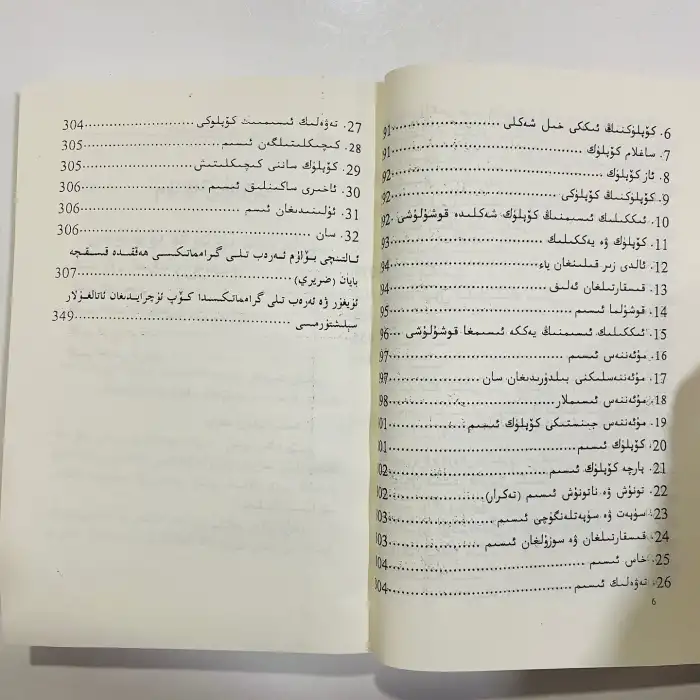 6. كۆپلۈكنىڭ ئىككى خىل شەكلى ........ 91
7. ساغلام كۆپلۈك ........ 91
8. ئاز كۆپلۈك ........ 92
9. كۆپلۈكنىڭ كۆپلۈكى ........ 92
10. ئىككىلىك ئىسىمنىڭ كۆپلۈك شەكلىدە قوشۇلۇشى 92
11. كۆپلۈك ۋە يەككىلىك ........ 93
12. ئالدى زىر قىلىنغان ياء ........ 94
13. قىسقارتىلغان ئەلىق ........ 94
14. قوشۇلما ئىسىم ........ 95
15. ئىككىلىك ئىسىمنىڭ يەككە ئىسىمغا قوشۇلۇشى ... 96
16. مۇئەننەس ئىسىم ........ 97
17. مۇئەننەسلىكنى بىلدۈرىدىغان سان ........ 97
18. مۇئەننەس ئىسىملار ........ 98
19. مۇئەننەس جىنىستىكى كۆپلۈك ئىسىم ........ 01
20. كۆپلۈك ئىسىم ........ 01
21. پارچە كۆپلۈك ئىسىم ........ 02
22. تونۇش ۋە ناتونۇش ئىسىم (تەكرار) ........ 02
23. سۈپەت ۋە سۈپەتلەنگۈچى ئىسىم ........ 03
24. قىسقارتىلغان ۋە سوزۇلغان ئىسىم ........ 03
25. خاس ئىسىم ........ 04
26. تەۋەلىك ئىسىم ........ 04
6
27. تەۋەلىك ئىسىمنىڭ كۆپلۈكى ........ 304
28. كىچىكلىتىلگەن ئىسىم ........ 305
29. كۆپلۈك ساننى كىچىكلىتىش ........ 305
30. ئاخىرى ساكىنلىق ئىسىم ........ 306
31. ئۈلىنىدىغان ئىسىم ........ 306
32. سان ........ 306
ئالتىنچى بۆلۈم ئەرەب تىلى گرامماتىكىسى ھەققىدە قىسقىچە
بايان (ضريري) ........ 307
ئۇيغۇر ۋە ئەرەب تىلى گرامماتىكىسىدا كۆپ ئۇچرايدىغان ئاتالغۇلار
سېلىشتۇرمىسى ........ 349